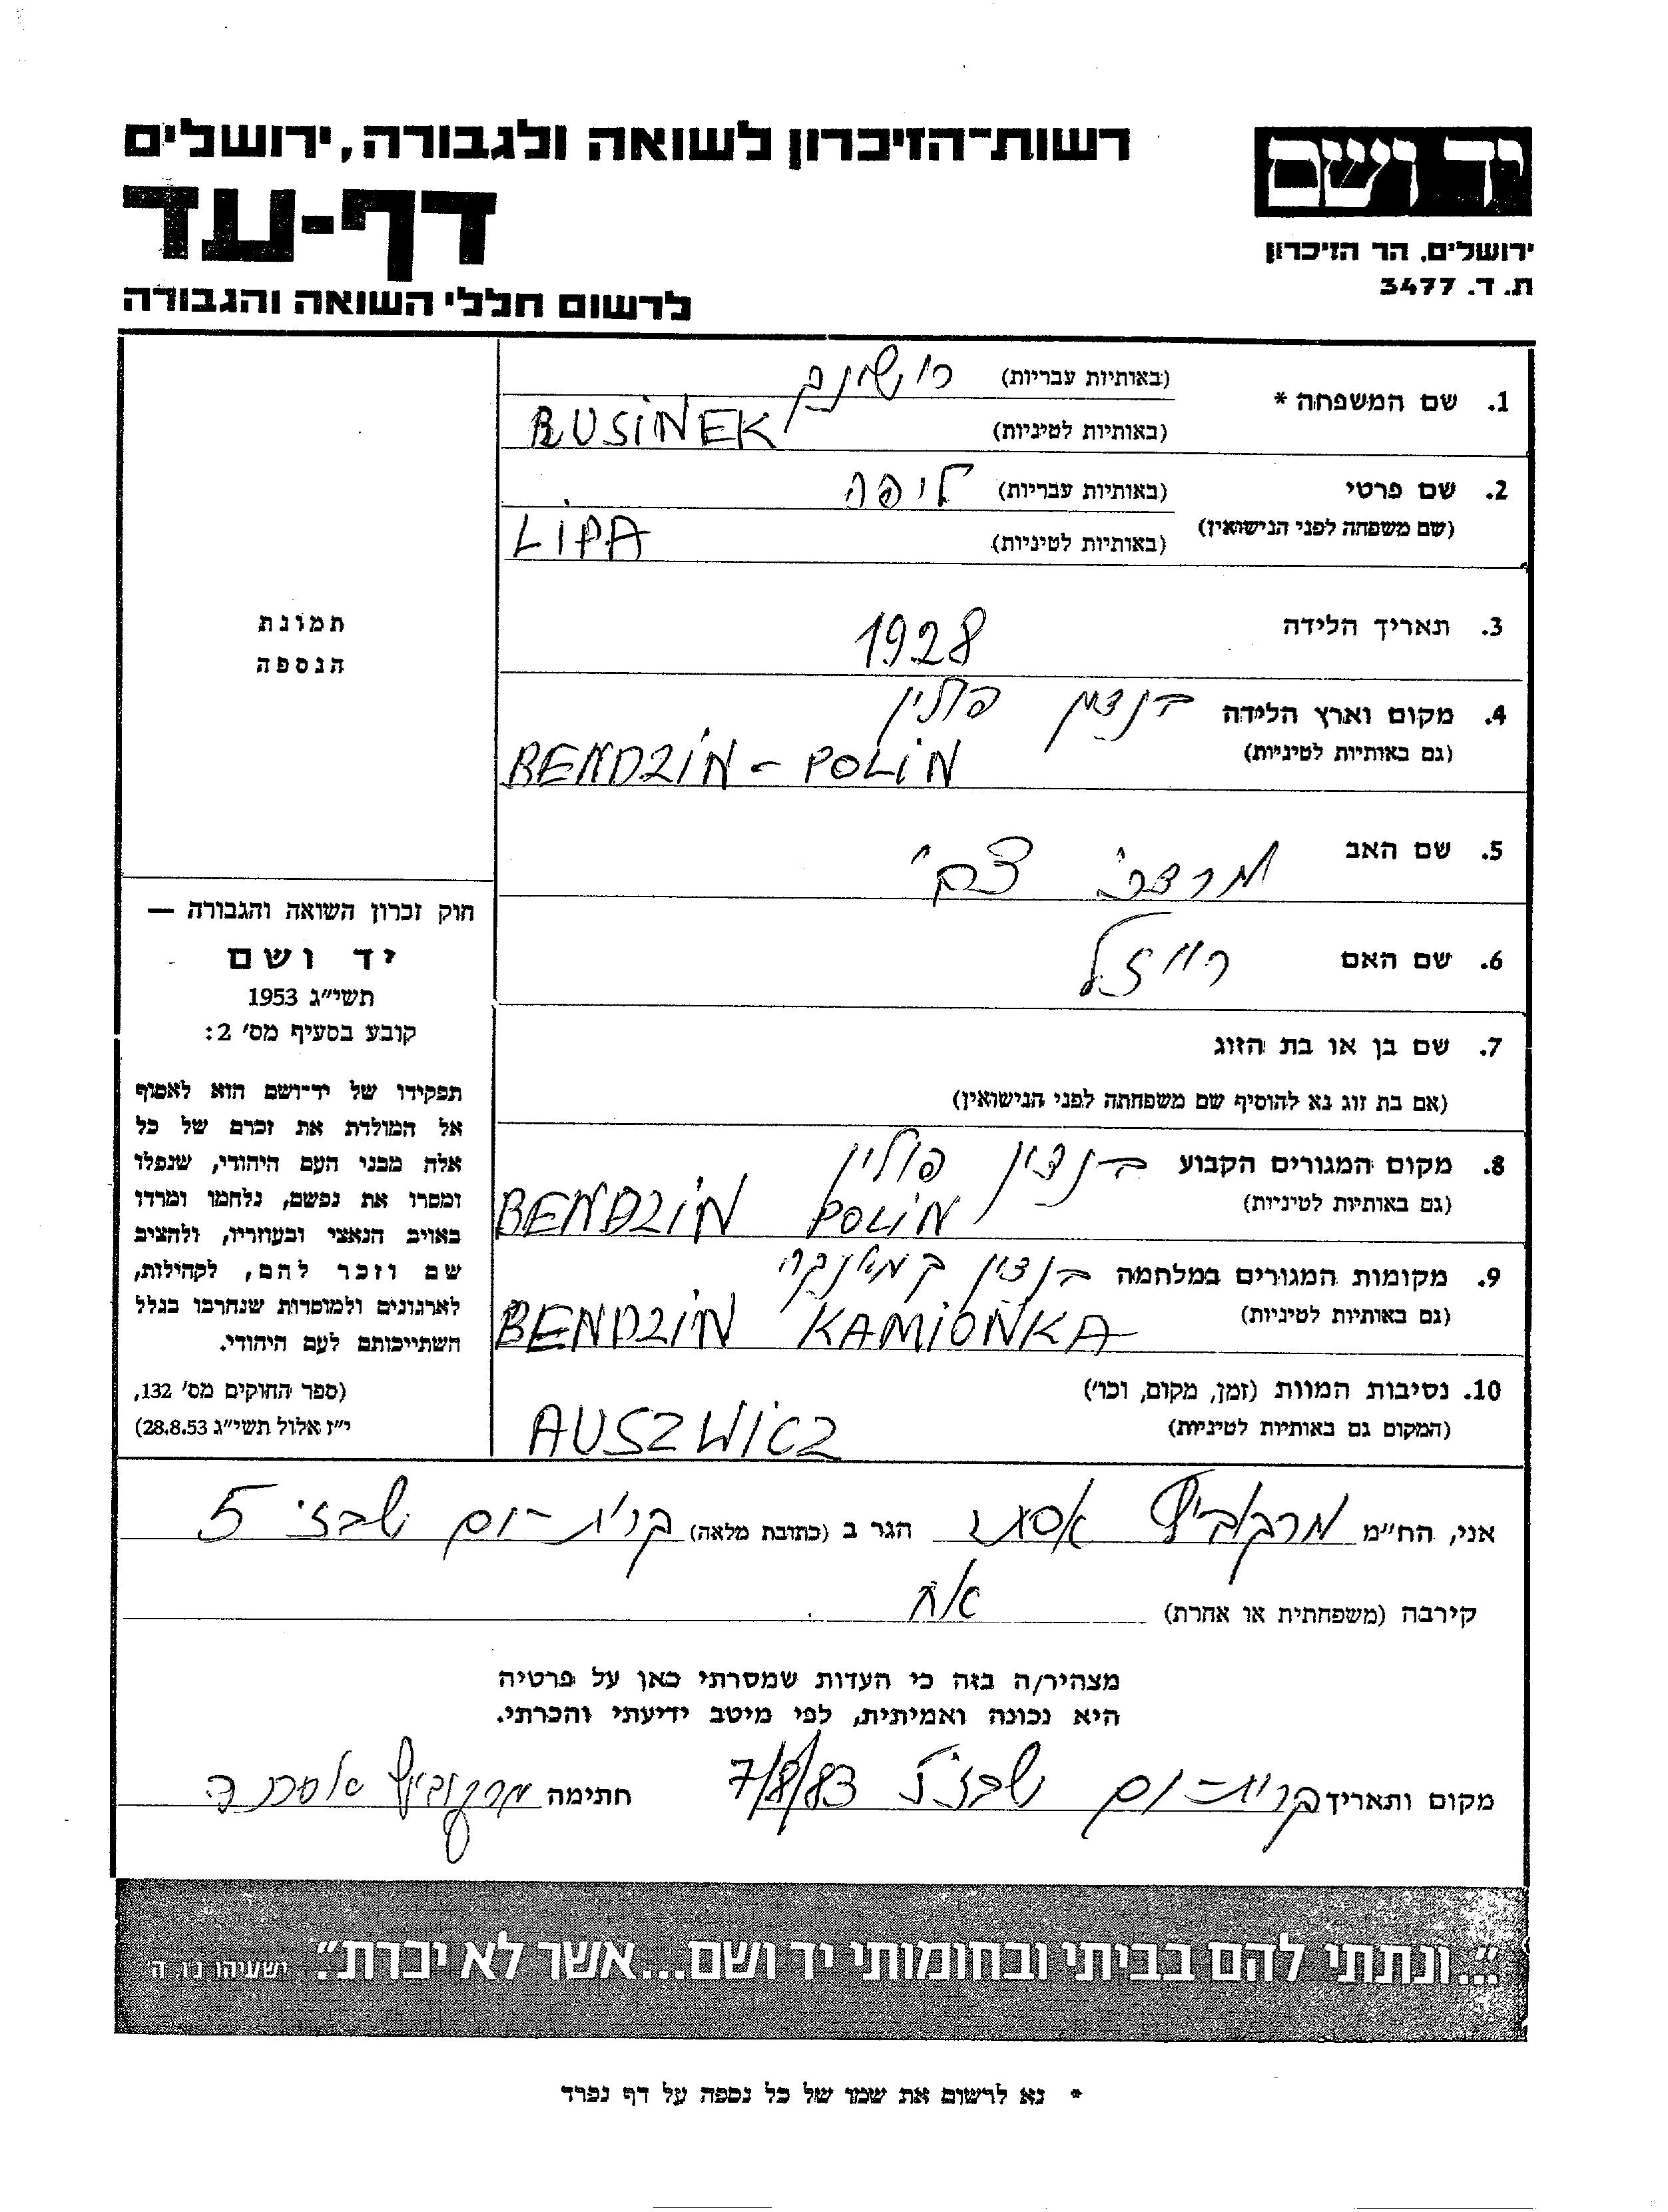 רשות־הזיכרון לשואה ולגבורה, ירושלים
דף-עד
לרשום חללי השואה והגבורה
יד ושם
ירושלים, הר הזיכרון
ת. ד. 3477
1. שם המשפחה * (באותיות עבריות)
(באותיות לטיניות) BUSINEK
2. שם פרטי (באותיות עבריות) ליפה
(שם משפחה לפני הנישואין) (באותיות לטיניות) LIPA
3. תאריך הלידה 1928
4. מקום וארץ הלידה בנדzין פולין
(גם באותיות לטיניות) BENDZIN - POLIN
5. שם האב מרדכי צבי
6. שם האם רייזל
7. שם בן או בת הזוג
(אם בת זוג נא להוסיף שם משפחתה לפני הנישואין)
8. מקום המגורים הקבוע בנדין פולין
(גם באותיות לטיניות) BENDZIN POLIN
9. מקומות המגורים במלחמה בנדין קמיונקה
(גם באותיות לטיניות) BENDZIN KAMIONKA
10. נסיבות המוות (זמן, מקום, וכו')
(המקום גם באותיות לטיניות) AUSZWICZ
תמונת
הנספה
חוק זכרון השואה והגבורה —
יד ושם
תשי״ג 1953
קובע בסעיף מס' 2:
תפקידו של יד־ושם הוא לאסוף
אל המולדת את זכרם של כל
אלה מבני העם היהודי, שנפלו
ומסרו את נפשם, נלחמו ומרדו
באויב הנאצי ובעוזריו, ולהציב
שם וזכר להם, לקהילות,
לארגונים ולמוסדות שנחרבו בגלל
השתייכותם לעם היהודי.
(ספר החוקים מס' 132,
י״ז אלול תשי״ג 28.8.53)
אני, הח״מ מרקוביץ אסתר הגר ב (כתובת מלאה) קרית-ים שבזי 5
קירבה (משפחתית או אחרת) אח
מצהיר/ה בזה כי העדות שמסרתי כאן על פרטיה
היא נכונה ואמיתית, לפי מיטב ידיעתי והכרתי.
מקום ותאריך קרית-ים שבזי 5 7/8/83 חתימה מרקוביץ
״...ונתתי להם בביתי ובחומותי יד ושם...אשר לא יכרת״. ישעיהו נו, ה'
* נא לרשום את שמו של כל נספה על דף נפרד